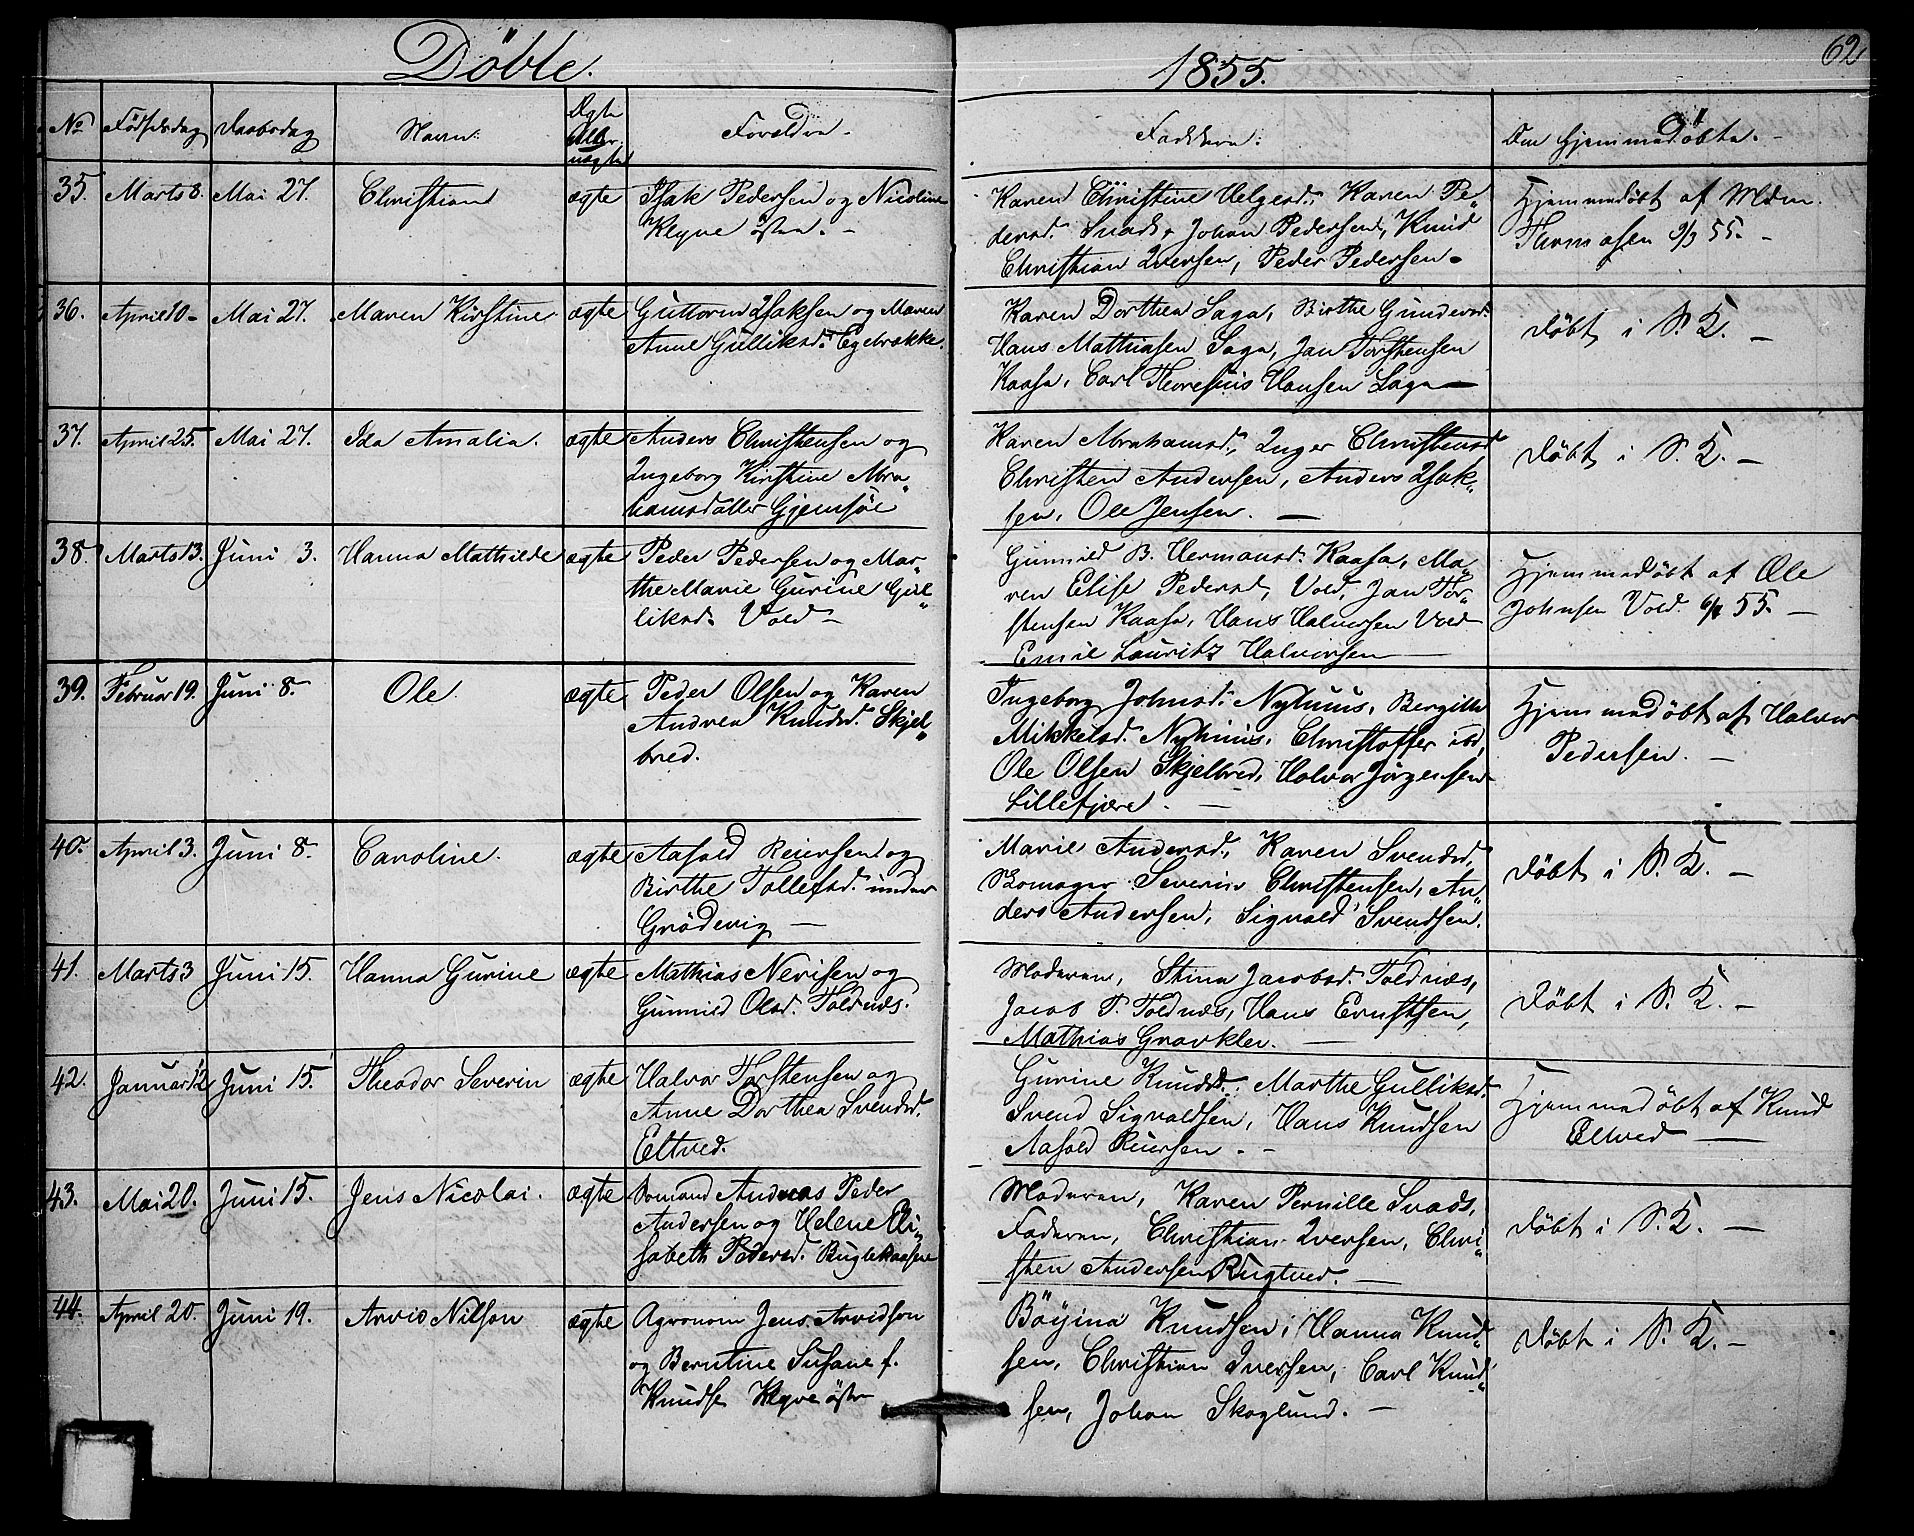 Döbte.
1855.
62
No Födselsdag Daabsdag Navn. Ægte eller uægte Forældre. Faddere. Om hjemmedöbte.
35. Marts 8. Mai 27. Christiane ægte Isak Pedersen og Nicoline
Klyve östre.
Karen Christine Helgesd., Karen Pe-
dersd. Snads, Johan Pedersen, Knud
Christian Iversen, Peder Pedersen
Hjemmedöbt af Mdm.
Thomasen 9/3 55.
36. April 10 Mai 27. Maren Kirstine ægte Guttorm Isaksen og Maren
Anne Gulliksd. Egebrække.
Karen Dorthea Saga, Birthe Gundersd.
Hans Mathiasen Saga, Jan Torstensen
Kaasa, Carl Thoresius Hansen Saga
döbt i S. K.
37. April 25. Mai 27. Ida Amalia. ægte Anders Christensen og
Ingeborg Kirstine Abra-
hamsdatter Gjemsöe
Karen Abrahamsd., Inger Christensd
Christen Andersen, Anders Isak-
sen, Ole Jensen.
döbt i S. K.
38. Marts 13. Juni 3. Hanna Mathilde ægte Peder Pedersen og Mar-
the Marie Gurine Gul-
liksd. Vold
Gunnild B. Hermansd. Kaasa, Ma-
ren Elise Pedersd, Vold, Jan Tor-
stensen Kaasa, Hans Halvorsen Vold
Emil Lauritz Halvorsen
Hjemmedöbt af Ole
Johnsen Vold 55.
39. Februar 19. Juni 8. Ole. ægte Peder Olsen og Karen
Andrea Knudsd. Skjel-
bred.
Ingeborg Johnsd. Nyhuus, Bergitte
Mikkelsd. Nyhuus, Christoffer ibd,
Ole Olsen Skjelbred, Halvor Jörgensen
Lillefjære.
Hjemmedöbt af Halvor
Pedersen.
40. April 3. Juni 8. Caroline. ægte Aasold Reiersen og
Birthe Tollefsd. under
Grödevig
Marie Andersd., Karen Svendsd,
Skomager Severin Christensen, An-
ders Andersen, Sigvald Svendsen.
döbt i S. K.
41. Marts 3 Juni 15. Hanna Gurine ægte Mathias Nerisen og
Gunnild Olsd. Toldnæs.
Moderen, Stina Jacobsd. Toldnæs,
Jacob P. Toldnæs, Hans Ernstsen,
Mathias Gravkler.
döbt i S. K.
42. Januar 12 Juni 15. Theodor Severin ægte Halvor Torstensen og
Anne Dorthea Svendsd.
Eltved.
Gurine Knudsd., Marthe Gulliksd.
Svend Sigvaldsen, Hans Knudsen
Aasold Reiersen.
Hjemmedöbt af Knud
Eltved
43. Mai 20. Juni 15. Jens Nicolai. ægte Somand Andreas Peder
Andersen og Helene Eli-
sabeth Pedersd. Buglekaasene
Moderen, Karen Pernille Snads,
Faderen, Christian Iversen, Chri-
sten Andersen Rugtved.
döbt i S. K.
44. April 20. Juni 19. Arvid Nilson ægte Agronom Jens Arvidson
og Berntine Susane f.
Knudse Klyve östre
Böyina Knudsen, Hanna Knud-
sen, Christian Iversen, Carl Knud-
sen, Johan Skoglund.
döbt i S. K.